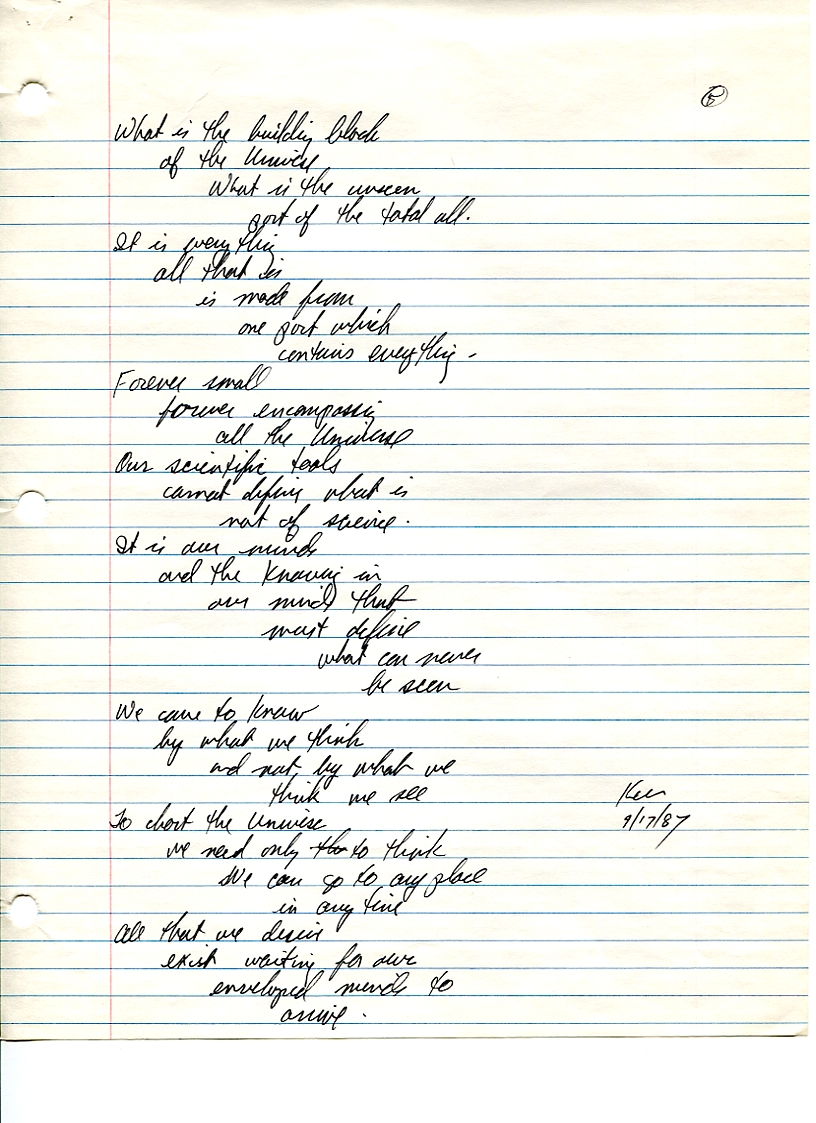 What is the building block
of the Universe
What is the unseen
part of the total all.
It is everything
all that is
is made from
one part which
contains everything -
Forever small
forever encompassing
all the Universe
Our scientific tools
cannot define what is
not of science.
It is our minds
and the Knowing in
our minds that
must define
what can never
be seen
We came to know
by what we think
and not, by what we
think we see
Ken
9/17/87
To chart the Universe
we need only to think
We can go to any place
in any time
All that we desire
exist waiting for our
enveloped minds to
arrive.